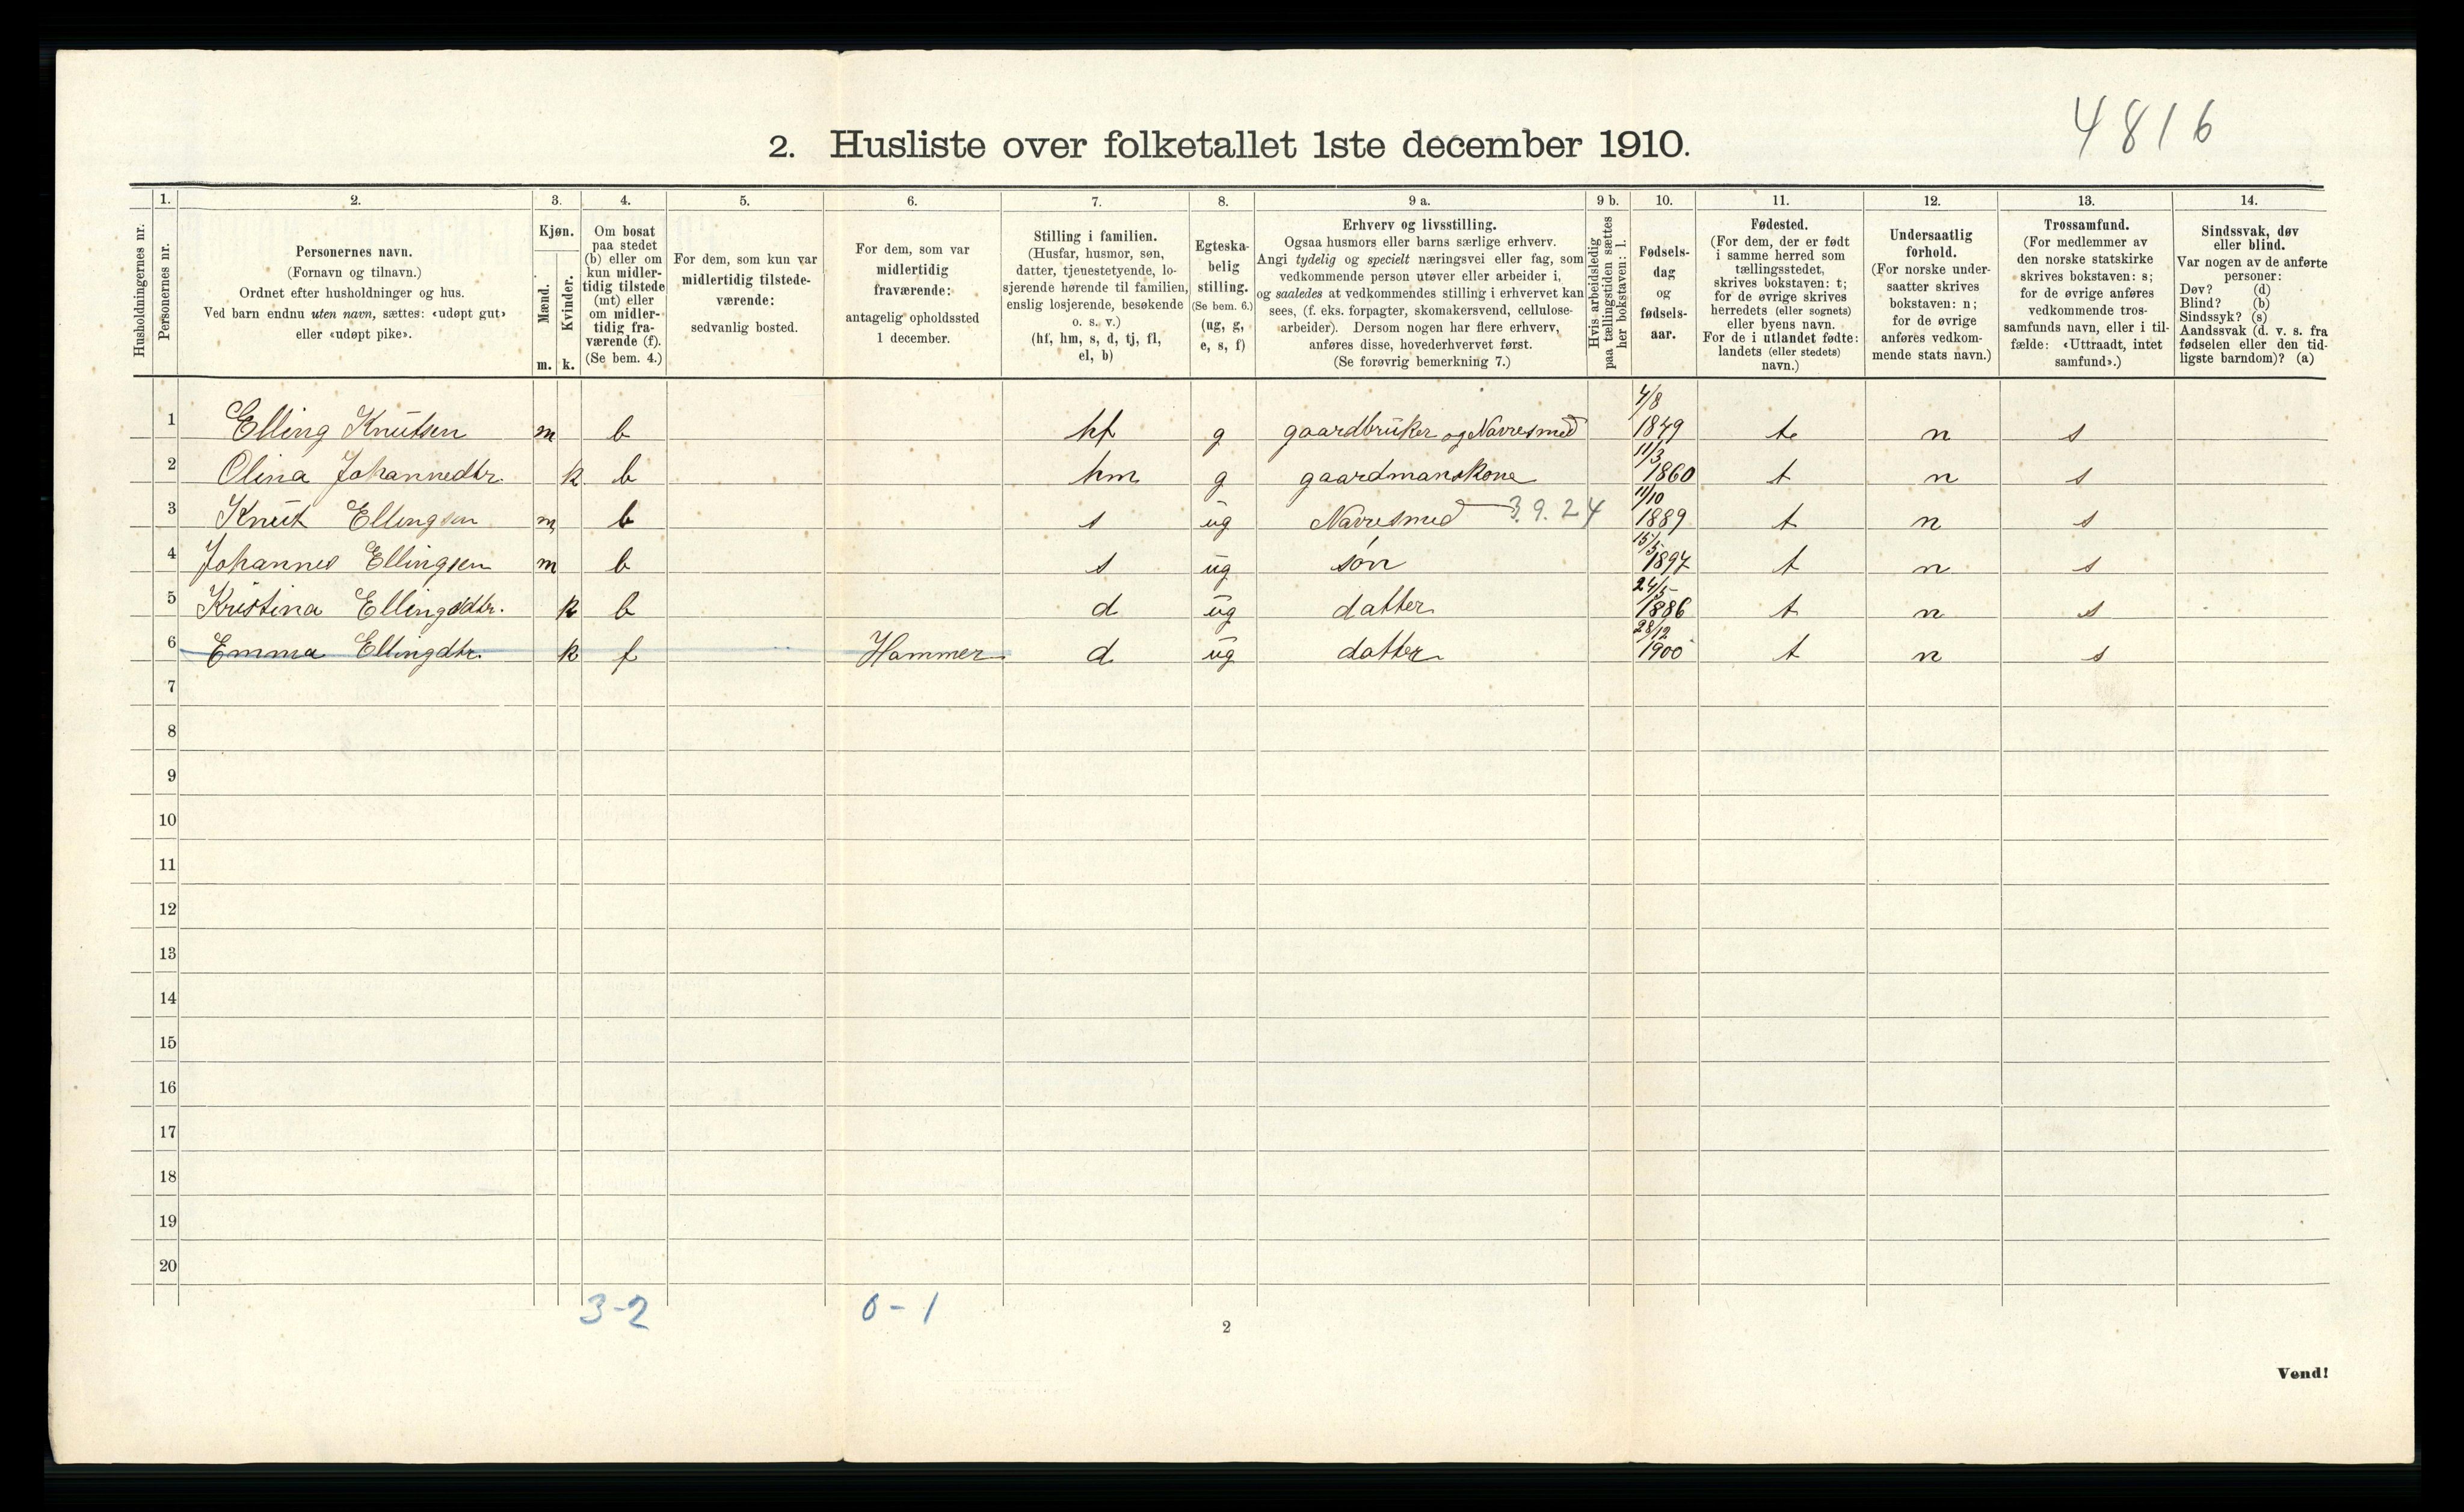 4816
2. Husliste over folketallet 1ste december 1910.
Husholdningernes nr.
1.
Personernes nr.
2.
Personernes navn.
(Fornavn og tilnavn.)
Ordnet efter husholdninger og hus.
Ved barn endnu uten navn, sættes: «udøpt gut»
eller «udøpt pike».
3.
Kjøn.
Mænd.
Kvinder.
m. k.
4.
Om bosat
paa stedet
(b) eller om
kun midler-
tidig tilstede
(mt) eller
om midler-
tidig fra-
værende (f).
(Se bem. 4.)
5.
For dem, som kun var
midlertidig tilstede-
værende:
sedvanlig bosted.
6.
For dem, som var
midlertidig
fraværende:
antagelig opholdssted
1 december.
7.
Stilling i familien.
(Husfar, husmor, søn,
datter, tjenestetyende, lo-
sjerende hørende til familien,
enslig losjerende, besøkende
o. s. v.)
(hf, hm, s, d, tj, fl,
el, b)
8.
Egteska-
belig
stilling.
(Se bem. 6.)
(ug, g,
e, s, f)
9 a.
Erhverv og livsstilling.
Ogsaa husmors eller barns særlige erhverv.
Angi tydelig og specielt næringsvei eller fag, som
vedkommende person utøver eller arbeider i,
og saaledes at vedkommendes stilling i erhvervet kan
sees, (f. eks. forpagter, skomakersvend, cellulose-
arbeider). Dersom nogen har flere erhverv,
anføres disse, hovederhvervet først.
(Se forøvrig bemerkning 7.)
9 b.
Hvis arbeidsledig
paa tællingstiden sættes
her bokstaven: l.
10.
Fødsels-
dag
og
fødsels-
aar.
11.
Fødested.
(For dem, der er født
i samme herred som
tællingsstedet,
skrives bokstaven: t;
for de øvrige skrives
herredets (eller sognets)
eller byens navn.
For de i utlandet fødte:
landets (eller stedets)
navn.)
12.
Undersaatlig
forhold.
(For norske under-
saatter skrives
bokstaven: n;
for de øvrige
anføres vedkom-
mende stats navn.)
13.
Trossamfund.
(For medlemmer av
den norske statskirke
skrives bokstaven: s;
for de øvrige anføres
vedkommende tros-
samfunds navn, eller i til-
fælde: «Uttraadt, intet
samfund».)
14.
Sindssvak, døv
eller blind.
Var nogen av de anførte
personer:
Døv? (d)
Blind? (b)
Sindssyk? (s)
Aandssvak (d. v. s. fra
fødselen eller den tid-
ligste barndom)? (a)
1 Elling Knutsen m b hf g gaardbruker og Navresmed 4/8 1849 t n s
2 Olina Johannedtr. k b hm g gaardmanskone 11/3 1860 t n s
3 Knut Ellingsen m b s ug Navresmed 3.9.24 11/10 1889 t n s
4 Johannes Ellingsen m b s ug søn 15/5 1897 t n s
5 Kristina Ellingsdtr. k b d ug datter 24/5 1886 t n s
6 Emma Ellingdtr. k f Hammer d ug datter 28/12 1900 t n s
7
8
9
10
11
12
13
14
15
16
17
18
19
20
3-2 0-1
2
Vend!